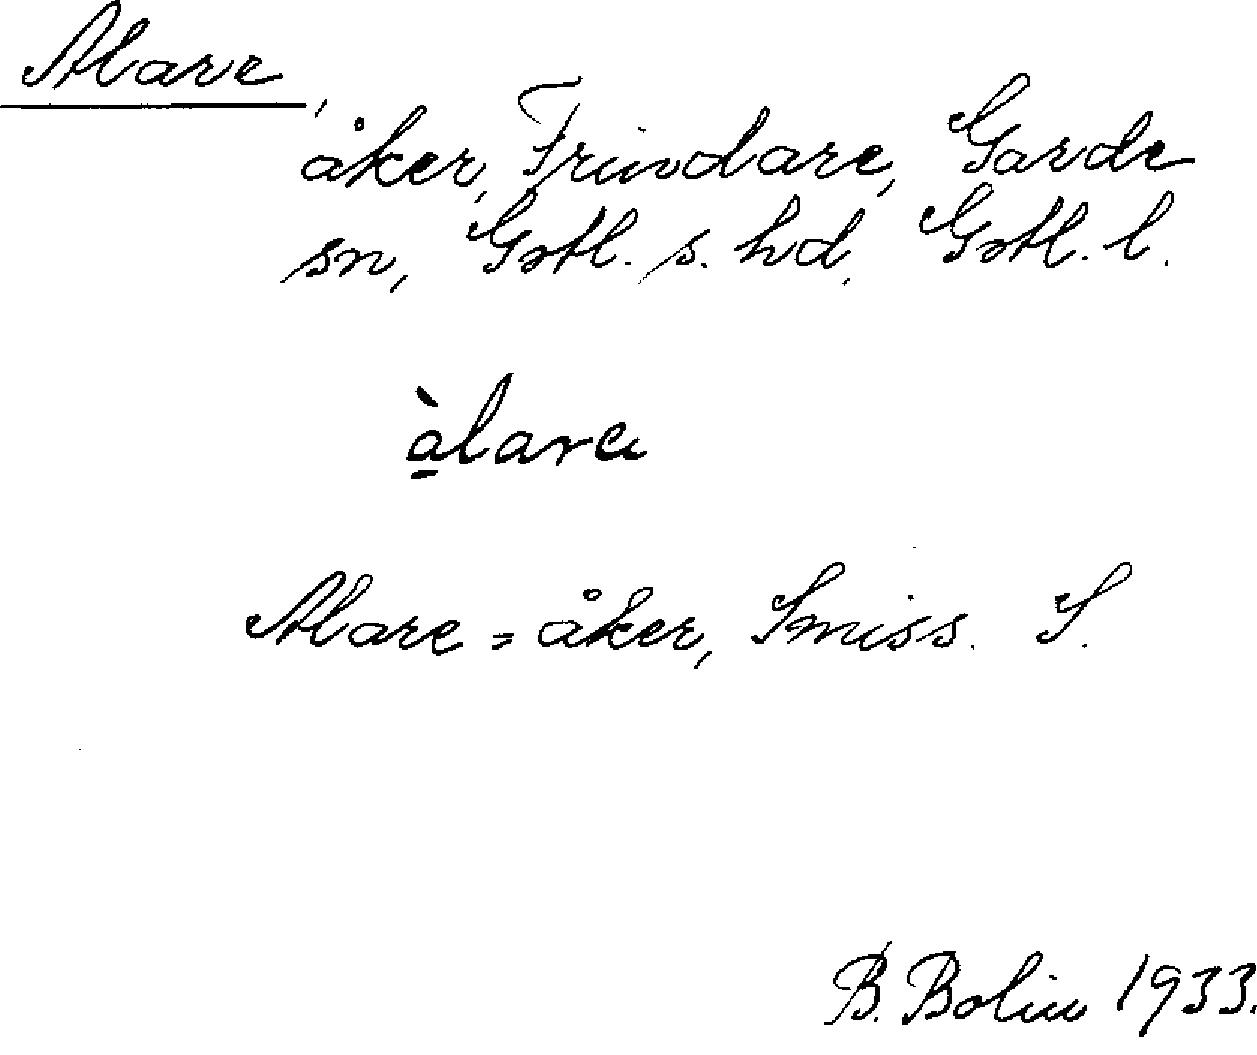 Alare,
åker, Frindare, Garde
sn, Gotl. s. hd, Gotl. l.
àlarε
Alare = åker, Smiss. S.
B. Bolin 1933.